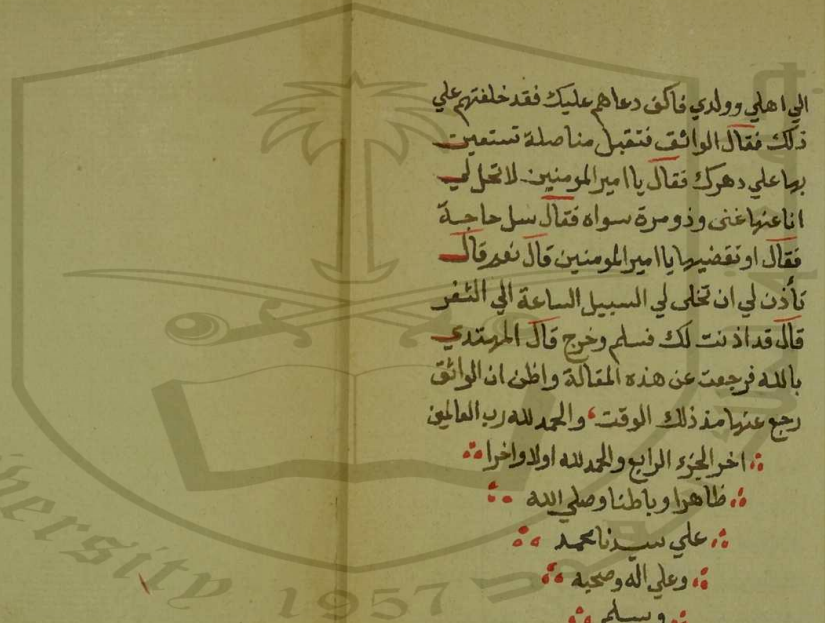 الي اهلي وولدي فاكف دعاهم عليك فقد خلفتهم علي
ذلك فقال الواثق فتقبل منا صلة تستعين
بها علي دهرك فقال يا امير المومنين لا تحل لي
انا عنها غنى وذو مرة سواه فقال سل حاجة
فقال او تقضيها يا امير المومنين قال نعم قال
تأذن لي ان تخلى لي السبيل الساعة الي الثغر
قال قد اذنت لك فسلم وخرج قال المهتدي
بالله فرجعت عن هذه المقالة واظن ان الواثق
رجع عنها مذ ذلك الوقت، والحمد لله رب العالمين
اخر الجزء الرابع والحمد لله اولا واخرا
ظاهرا وباطنا وصلي الله
علي سيدنا محمد
وعلي اله وصحبه
وسلم
1957